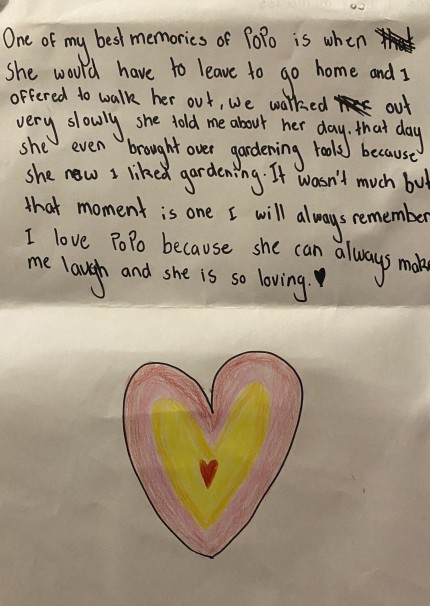 One of my best memories of PoPo is when
She would have to leave to go home and I
offered to walk her out, we walked out
very slowly she told me about her day. that day
she even brought over gardening tools because
she now I liked gardening. It wasn't much but
that moment is one I will always remember
I love PoPo because she can always make
me laugh and she is so loving. ♥